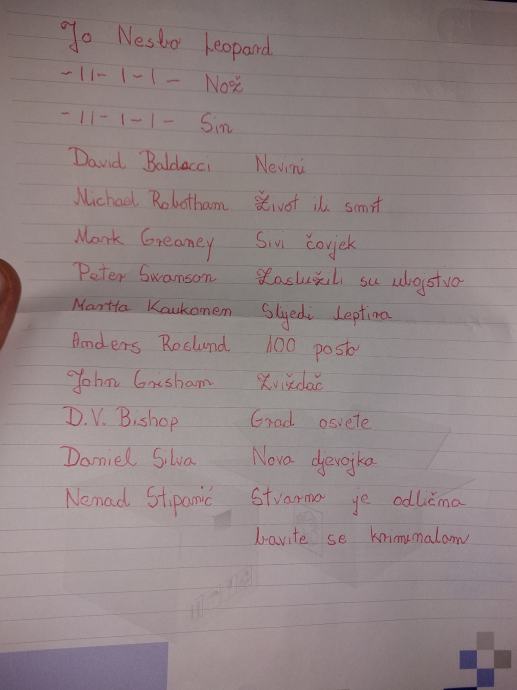 Jo Nesbo Leopard
-11-1-1- Nož
-11-1-1- Sin
David Baldacci Nevini
Michael Robotham Život ili smrt
Mark Greaney Sivi čovjek
Peter Swanson Zaslužili su ubojstvo
Martta Kaukonen Slijedi leptira
Anders Roslund 100 posto
John Grisham Zviždač
D.V. Bishop Grad osvete
Daniel Silva Nova djevojka
Nenad Stipanić Stvarno je odlično
bavite se kriminalom